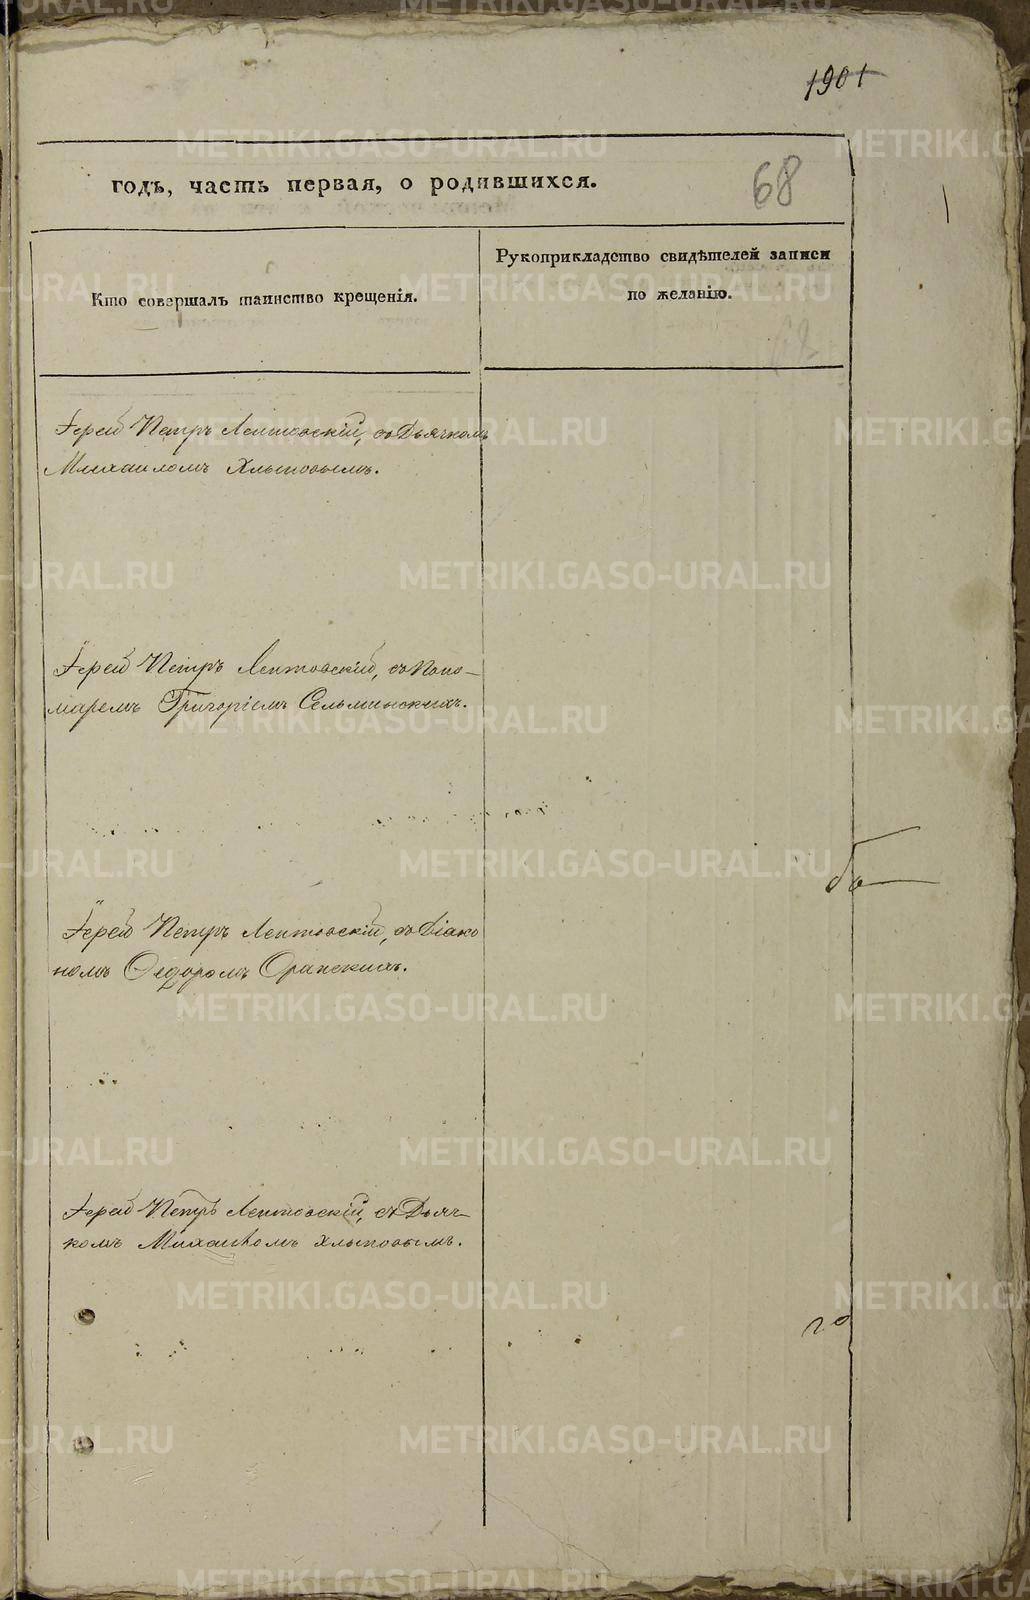 1901
годъ, часть первая, о родившихся.
68
Кто совершалъ таинство крещенія.
Рукоприкладство свидѣтелей записи
по желанію.
Іерей Петръ Лептовскій, съ Дьячкомъ
Михаиломъ Хлыновымъ.
Іерей Петръ Лептовскій, съ Поно-
маремъ Григоріемъ Сельминскихъ.
Іерей Петръ Лептовскій, съ Діако
номъ Ѳедоромъ
Іерей Петръ Лептовскій, съ Дьяч-
комъ Михаиломъ Хлыновымъ.
METRIKI.GASO-URAL.RU